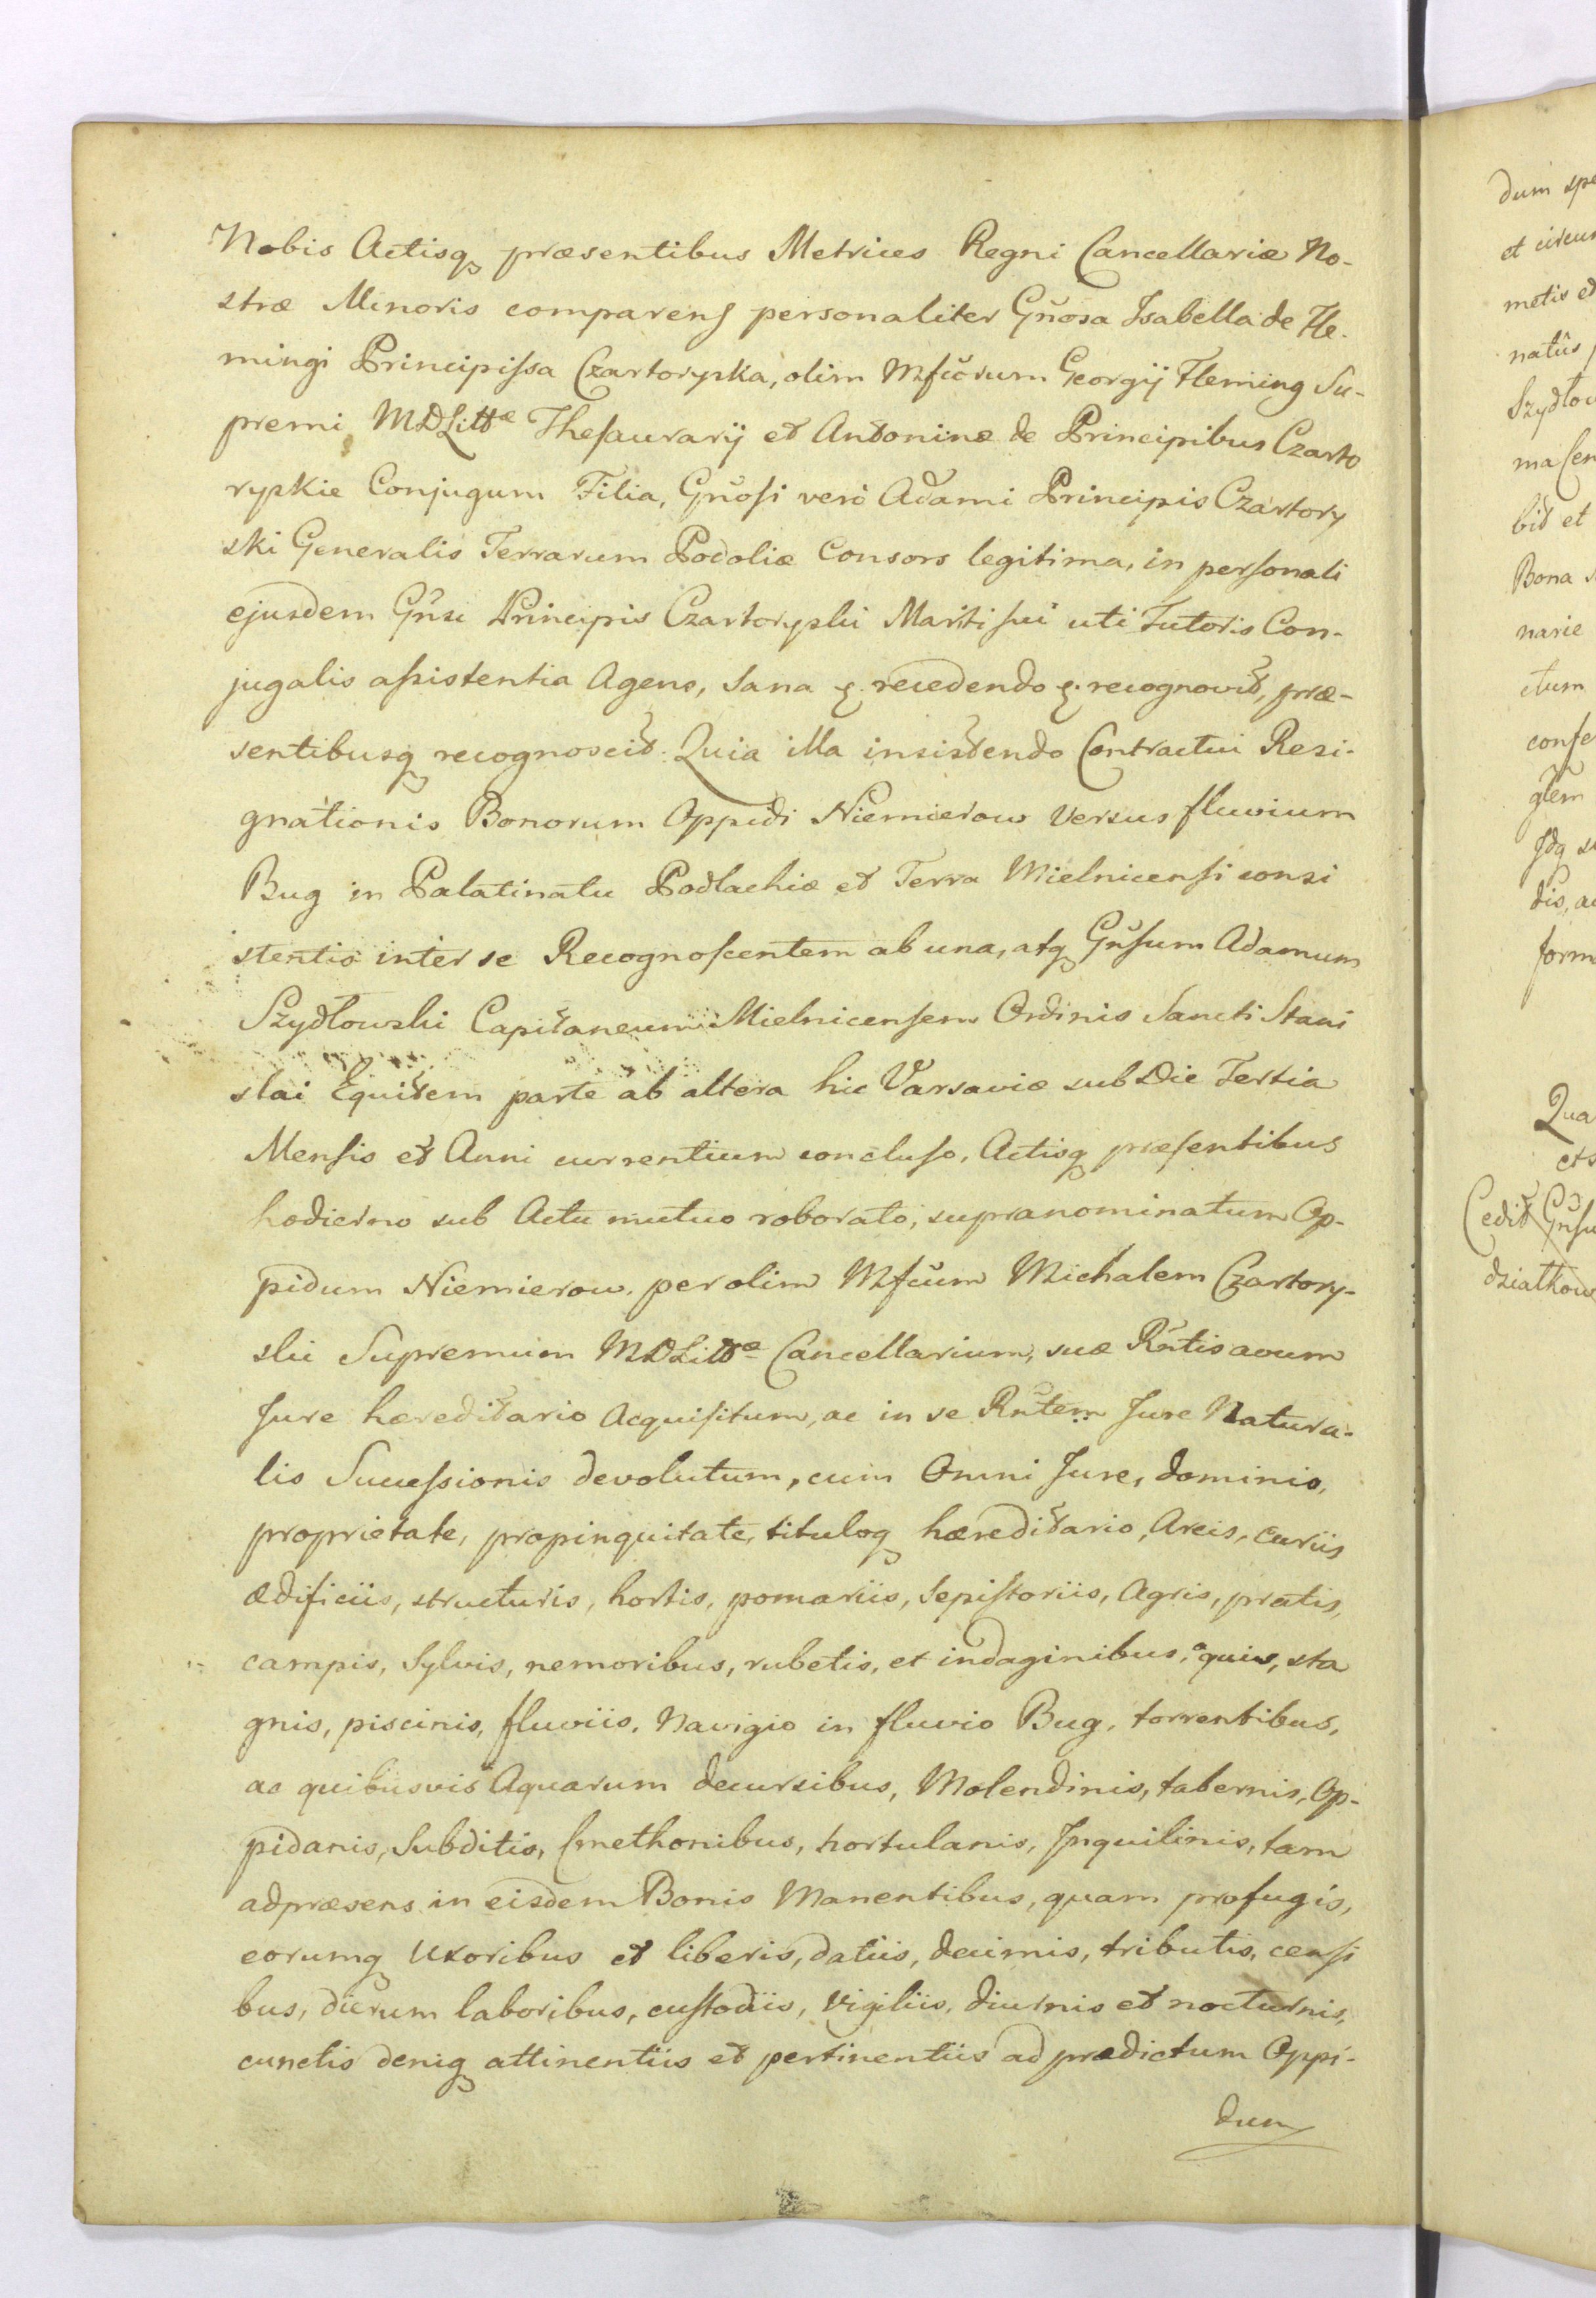 Nobis Actisq præsentibus Metrices Regni Cancellariæ No-
stræ Minoris comparens personaliter Gñosa Isabella de Fle-
mingi Principissa Czartoryska, olim Mfcõrum Georgij Fleming Su-
premi MDLittæ Thesaurarij et Antoninæ de Principibus Czarto
ryskie Conjugum Filia, Gñosi verò Adami Principis Czartory
ski Generalis Terrarum Podoliæ Consors legitima, in personali
ejusdem Gñsi Principis Czartoryski Mariti sui uti Tutoris Con-
jugalis assistentia Agens, sana p. recedendo p. recognovit, præ-
sentibusq recognoscit. Quia illa insistendo Contractui Resi-
gnationis Bonorum Oppidi Niemierow versus fluvium
Bug in Palatinatu Podlachiæ et Terra Mielnicensi consi
stentis inter se Recognoscentem ab una, atq Gñsum Adamum
Szydłowski Capitaneum Mielnicensem Ordinis Sancti Stani
slai Equitem parte ab altera hic Varsaviæ sub Die Tertia
Mensis et Anni currentium concluso, Actisq præsentibus
hodierno sub Actu mutuo roborato, supranominatum Op-
pidum Niemierow. per olim Mfcum Michalem Czartory-
ski Supremum MDLittæ Cancellarium, suæ Rñtis avum
Jure hæreditario Acquisitum, ac in se Rñtem Jure Natura-
lis Successionis devolutum, cum Omni Jure, dominio,
proprietate, propinquitate, tituloq hæreditario, Arcis, curiis
ædificiis, structuris, hortis, pomariis, Sepistoriis, Agris, pratis,
campis, Sylvis, nemoribus, rubetis, et indaginibus, aquis, sta
gnis, piscinis, fluviis, Navigio in fluvio Bug, torrentibus,
ac quibusvis Aquarum decursibus, Molendinis, tabernis, Op-
pidanis, Subditis, Cmethonibus, hortulanis, Inquilinis, tam
adpræsens in eisdem Bonis Manentibus, quam profugis,
eorumq Uxoribus et liberis, datiis, decimis, tributis, censi
bus, dierum laboribus, custodiis, Vigiliis, diurnis et nocturnis,
cunctis deniq attinentiis et pertinentiis ad prædictum Oppi-
dum
dum
et
metis
Szydło
bit et
Bona
narie
ctum
conse
form
Qua
Cedit